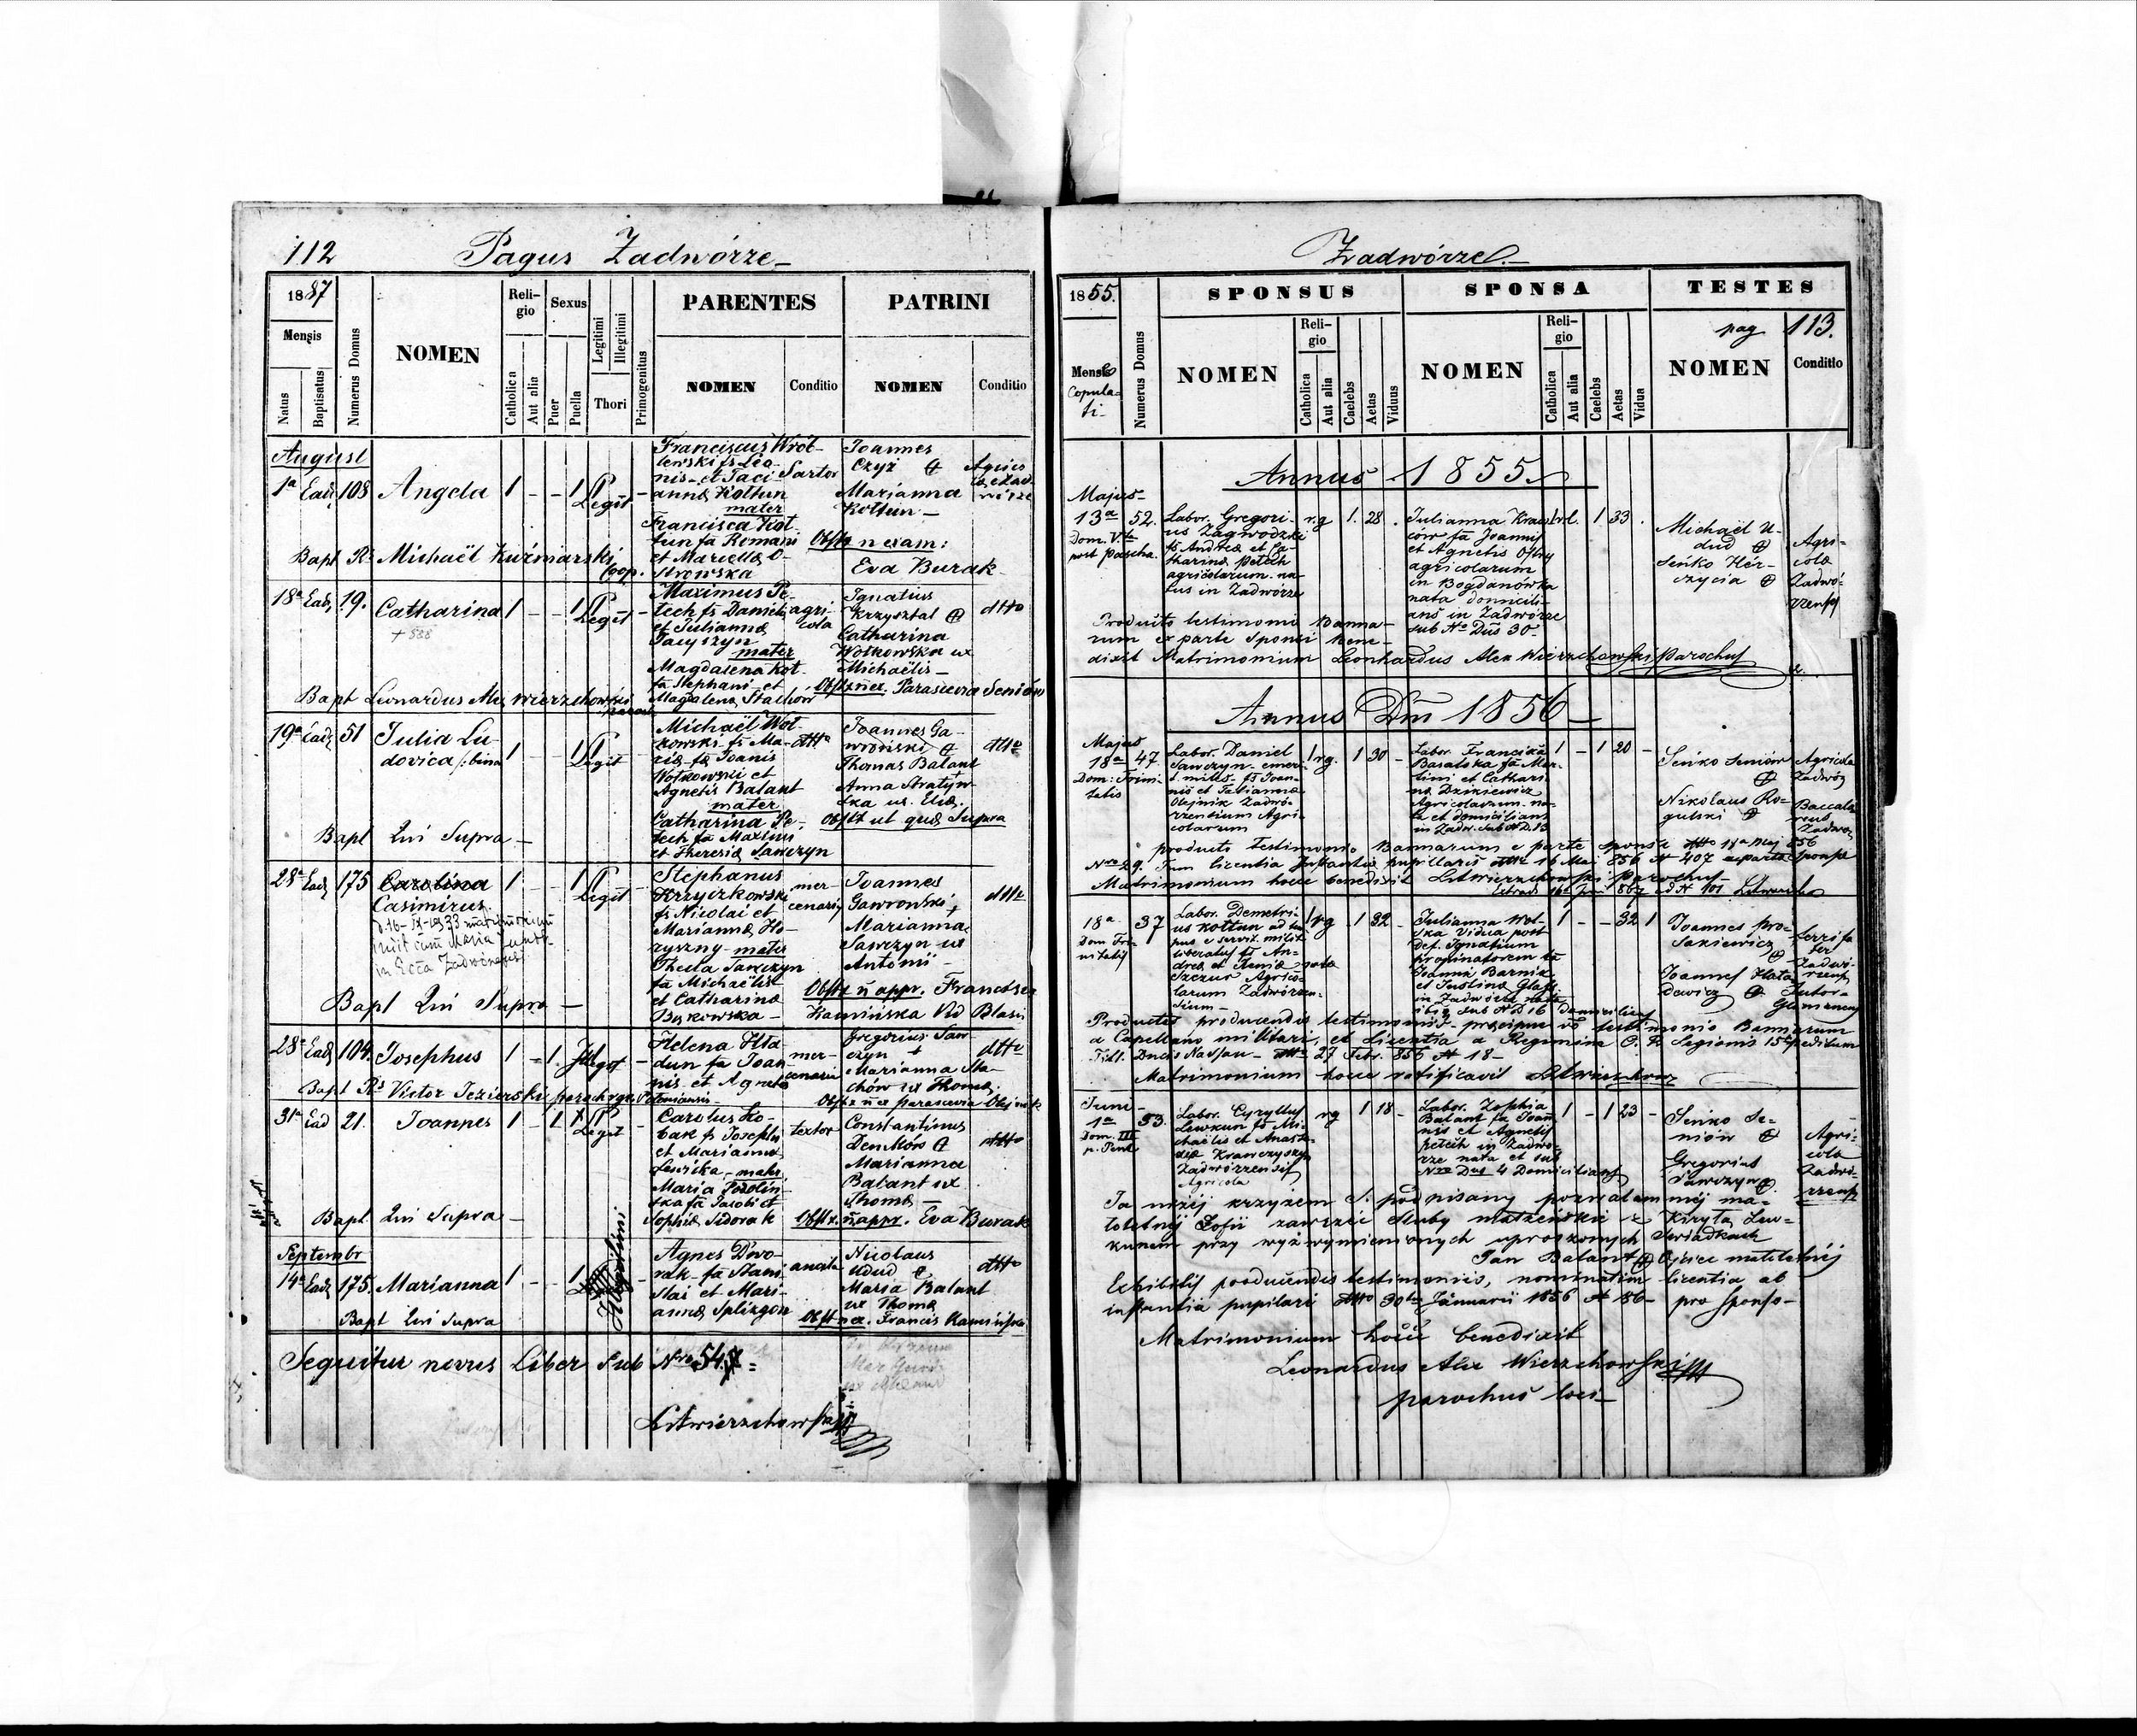 112 Pagus Zadwórze
1887
Mensis
Natus
Baptisatus
Numerus Domus
NOMEN
Reli-
gio
Catholica
Aut alia
Sexus
Puer
Puella
Legitimi
Illegitimi
Thori
Primogenitus
PARENTES
NOMEN
Conditio
PATRINI
NOMEN
Conditio
August
1a Ead 108 Angela 1 - - 1 Legit -
Franciscus Wrób-
lewski fs Leo-
nis et Taci-
annæ Kottun
mater
Francisca Kot-
tun fa Romani
et Mariellæ O-
strowska
Sartor
Joannes
Czyż
Marianna
Kottun -
Obstx n exam:
Eva Burak
Bapt Rs Michaël Kuźmiarski
Coop.
18a Ead 19. Catharina 1 - - 1 Legit -
+ 888
Maximus Pe-
tech fs Danielis
et Julianna
mater
Magdalena Kot-
fa Stephani et
Magdalena Stachów
agri-
cola
Ignatius
Krzysztal
Catharina
Wołkowska ux
Michaëlis -
dtto
Obstx n ex. Parascevia Seniów
Bapt Leonardus Alex Wierzchowski
19a Ead 51 Julia Lu-
dovica 1 - - 1 Legit
Michaël Woł-
kowski fs Ma-
riæ fa Joanis
Wołkowski et
Agnetis Balant
mater
Catharina Pe-
tech fa Maximi
et Theresiæ Sawczyn
dtto
Joannes Ga-
wroński
Thomas Balant
Anna Stratyń-
ska ux. Eliæ.
dtto
Obstx ut quæ Supra
Bapt Qui Supra -
28a Ead 175 Carolina 1 - - 1 Legit
Casimirus.
in Eccla Zadworensi
Stephanus
Krzyczkowski
fs Nicolai et
Mariannæ Ho-
ryszny - mater
Thecla Sawczyn
fa Michaëlis
et Catharinæ
Beskowska -
mer-
cenariy
Joannes
Gawroński +
Marianna
Sawczyn ux
Antonii -
dtto
Obstx n appr. Francisca
Kamińska Vid Blasii
Bapt Qui Supra -
28a Ead 104. Josephus 1 - 1.
Helena Hła-
dun fa Joan-
nis et Agnetis
mer-
cenaria
Gregorius Saw-
czyn +
Marianna Sta-
chów ux Thomæ.
dtto
Obstx n ex parascevia Olejnik
Bapt Rs Victor Jezierski paroch rgc
31a Ead 21. Joannes 1 - 1
Legit
Carolus Ko-
bak fs Josephi
et Mariannæ
Lewicka - mater
Maria Podlin-
ska fa Jacobi et
Sophiæ Sidorak
textor
Constantinus
Denków
Marianna
Balant ux
Thomæ -
dtto
Obstx. n appr. Eva Burak
Bapt. Qui Supra -
Septembr
14a Ead 175. Marianna 1 - - 1
Illegitimi
Agnes Dwo-
rak fa Stani-
slai et Mari-
annæ Splizgon
ancilla
Nicolaus
Udud
Maria Balant
ux Thomæ
dtto
Obst n ex. Francis Kamińska
Bapt Qui Supra
Sequitur novus Liber Sub Nro 54.
LAwierzchowski
Zadwórze. -
1855.
Mensis
Copula-
ti -
Numerus Domus
SPONSUS
NOMEN
Reli-
gio
Catholica
Aut alia
Caelebs
Aetas
Viduus
SPONSA
NOMEN
Reli-
gio
Catholica
Aut alia
Caelebs
Aetas
Vidua
TESTES
pag 113.
NOMEN
Conditio
Annus 1855
Majus
13a 52.
Dom. Vta
post pascha.
Labor. Gregori-
us Zagwodzki
fs Andreæ et Ca-
tharinæ Petech
agricolarum na-
tus in Zadwórze
r.g 1. 28.
Julianna Kraw-
ców fa Joannis
et Agnetis
agricolarum
in Bogdanówka
nata domicili-
ans in Zadwórze
sub No Dus 30.
1 33.
Michaël U-
dud
Seńko Her-
zycia
Agri-
colæ
Zadwó-
rzenses
Producto testimonio Banna-
rum ex parte Sponsi bene-
dixit Matrimonium Leonhardus Alex Wierzchowski Parochus
Annus Dni 1856 -
Majus
18a 47.
Dom: Trini-
tatis
Labor. Daniel
Sawczyn emer-
t. milit. fs Joan-
nis et Tatiannæ
Olejnik Zadwó-
rzensium Agri-
colarum
rg. 1 30 -
Labor. Francisca
Basalska fa Mar-
tini et Cathari-
næ Dzikiewicz
Agricolarum. na-
ta et domicilians
in Zadw. Sub N D. 13
1 - 1 20 -
Seńko Seniów
Nikolaus Ro-
gulski
Agricola
Zadwórz
Baccala-
reus
Zadwo
producto Testimonio Bannarum e parte sponsi dtto 18a Maj 856
Nro 29. Tum licentia Instantiæ pupillaris dtto 16 Mai 856 N 407 ex parte Sponsæ
Matrimonium hocce benedixit LAwierzchowski Parochus -
18a 37
Dom Tri-
nitatis
Labor. Demetri-
us Kottun ad tem-
pus e servit. milit
liberatus fs An-
dreæ et Xeniæ
Szczur Agrico-
larum Zadwórzen-
sium -
rg 1 32 -
Julianna Wol-
ska vidua post
def. Ignatium
propinatorem fa
Joannis Barnik
et Justinæ Glass
in Zadwórze nata
ibiq sub N D 16 Domicilians
1 - - 32 1
Joannes pro-
sakiewicz
Joannes Hata-
dewicz
Ferrifa-
ber
Zadwó-
rzens.
Sutor
Producta producendis testimoniis præcipue vo testimonio Bannarum
a Capellano militari, et licentia a Regimine C. R. Legionis 15ta peditum
Titl. Ducis Nassau - dtto 27 Febr. 856 N 18 -
Matrimonium hocce ratificavit LAwierzchow
Juni -
1a 53.
Dom. III
p. Pent.
Labor. Cyryllus
Lewkun fs Mi-
chaëlis et Anasta-
siæ Krawczyszyn
Zadwórzensis
Agricola
rg 1 18 -
Labor. Zophia
Balant fa Joan-
nis et Agnetis
petech in Zadwó-
rze nata et sub
Nro Dus 4 Domicilians
1 - 1 23 -
Seńko Se-
niów
Gregorius
Sawczyn
Agri-
colæ
Zadwó-
rzens.
Ja niżéj krzyżem S. podpisany pozwalam méj ma-
toletnéj Zofii zawrzeć Sluby małżeńskie z Kiryłą Lew-
kunem przy wyż wymienionych uproszonych Swiadkach
Jan Balant Ojciec małoletnéj
Exhibitis producendis testimoniis, nominatim licentia ab
instantia pupilari dtto 30ta Januarii 1856 N 186 - pro Sponso -
Matrimonium hocce benedixit
Leonardus Alex Wierzchowski
parochus loci -